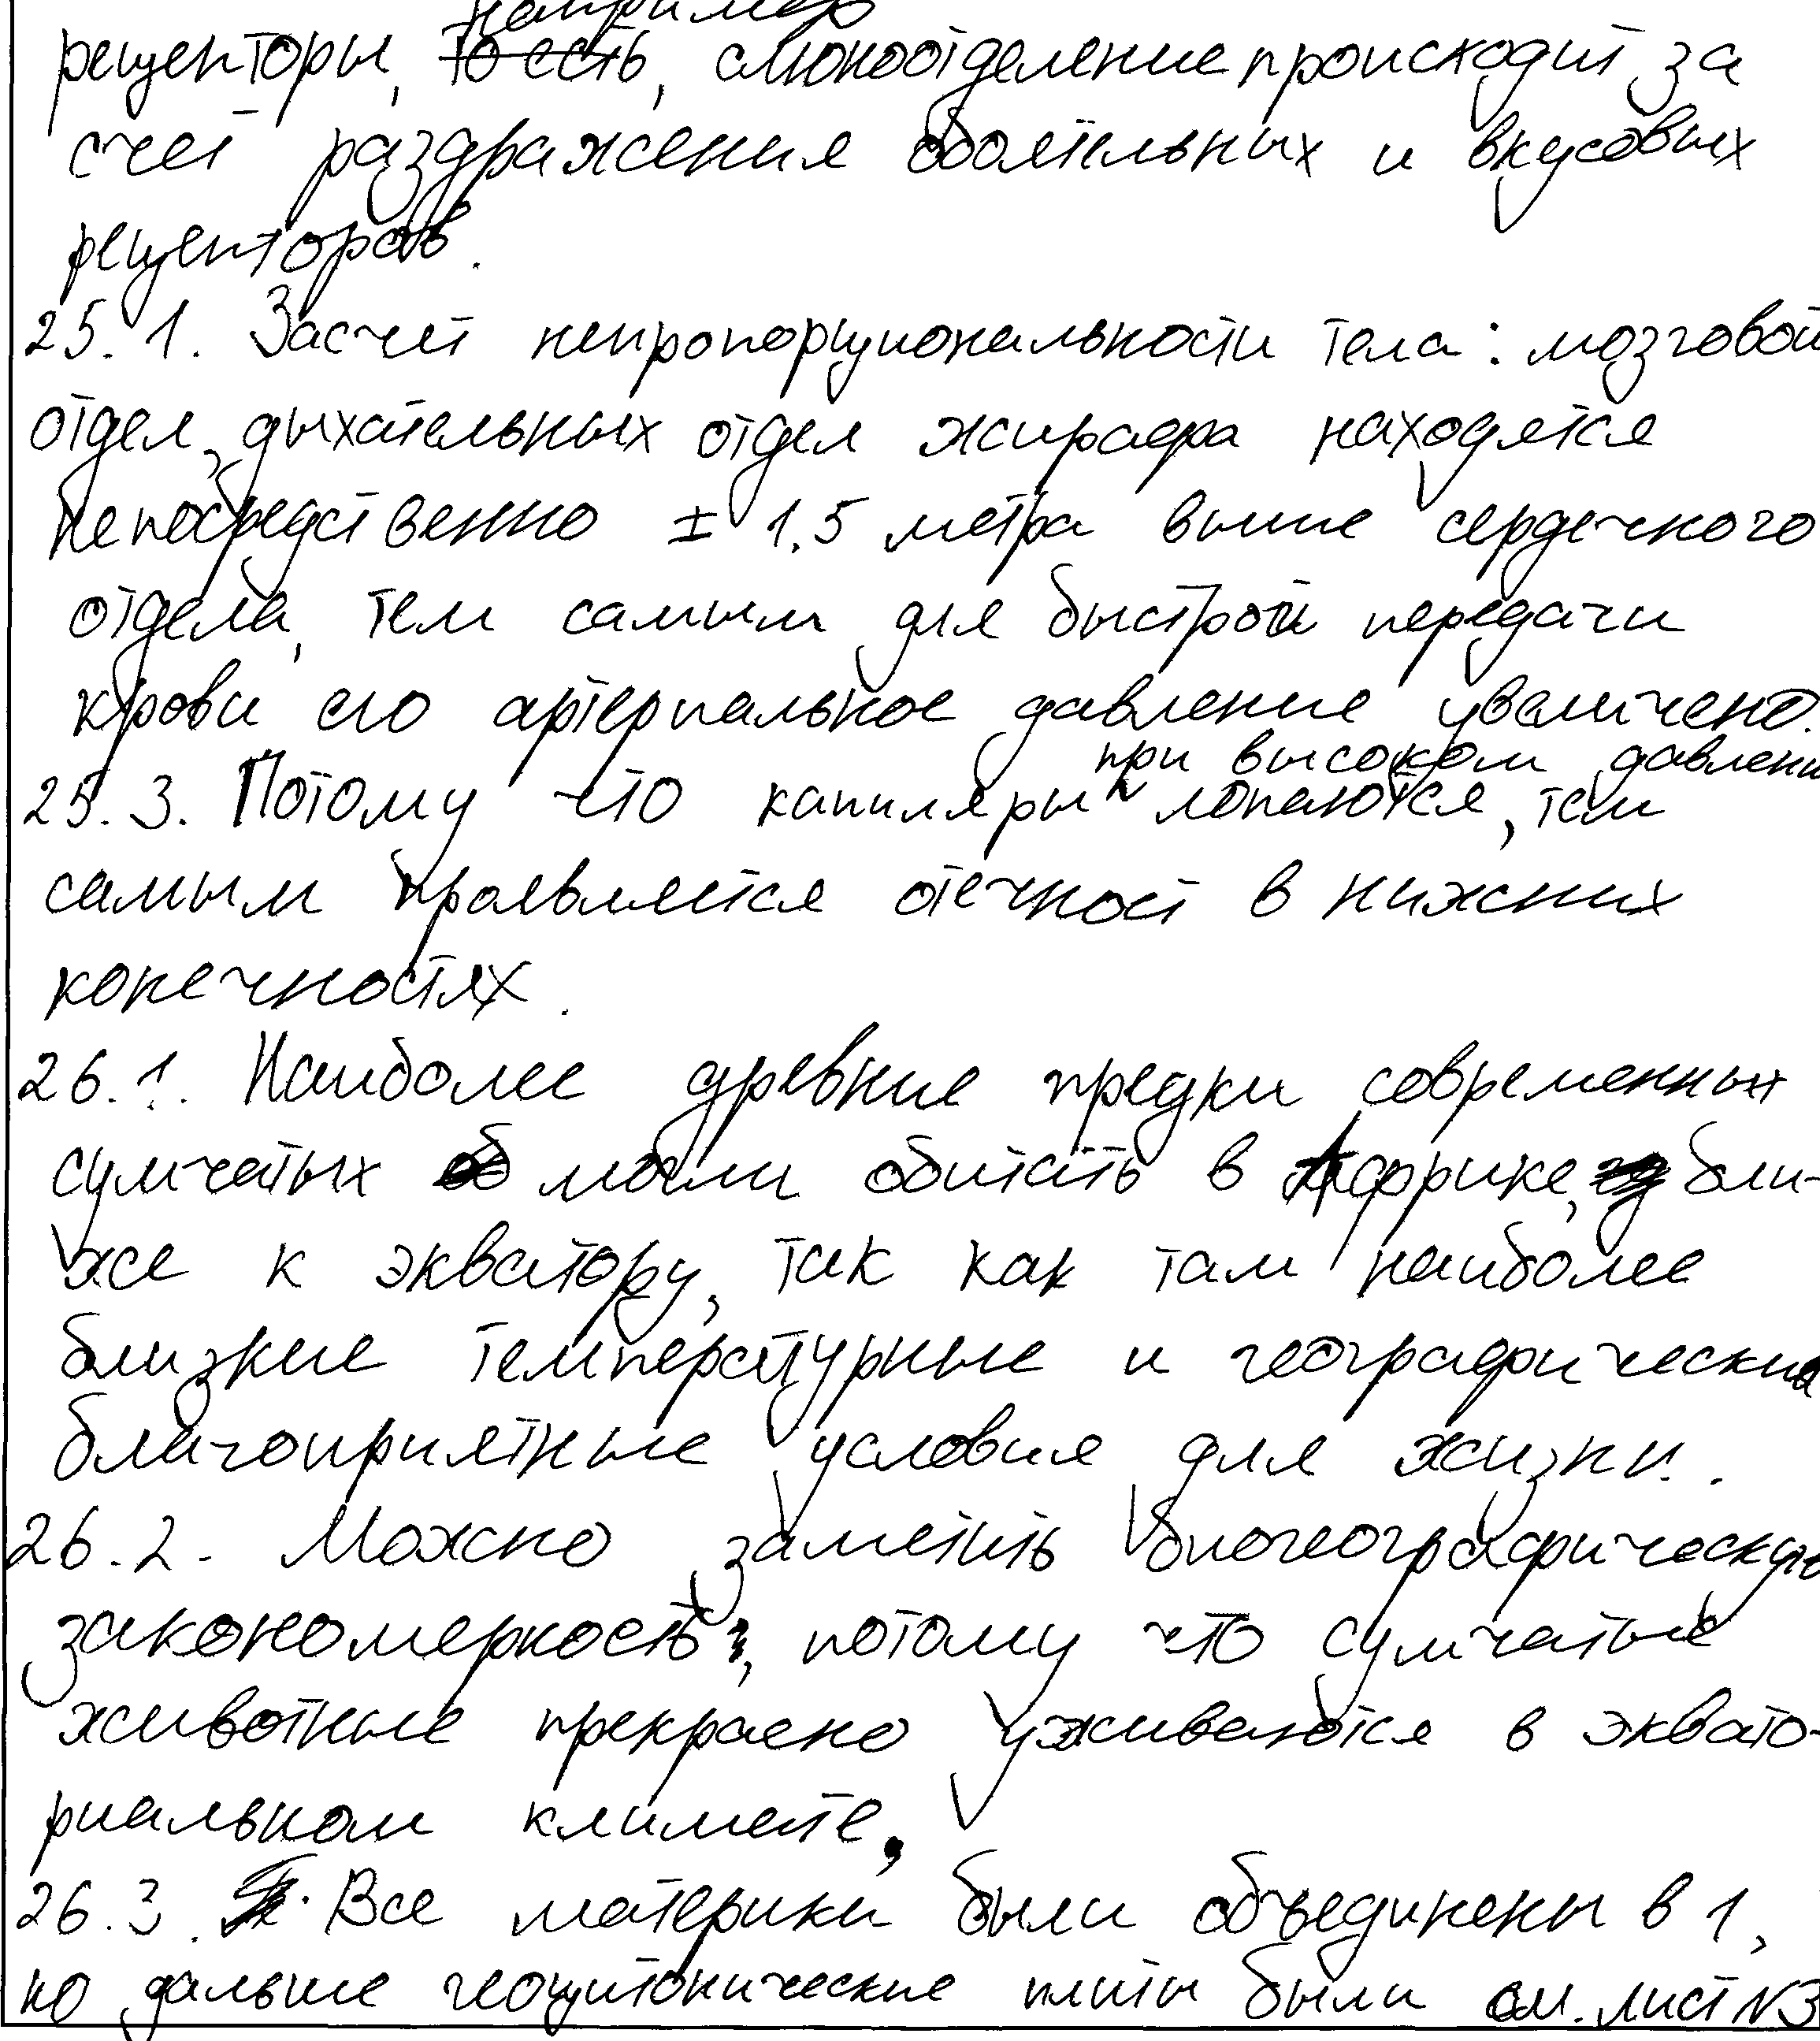 например
рецепторы, то есть, слюноотделение происходит за
счет раздражения обоятельных и вкусовых
рецепторов.
25.1. Засчет непропорциональности тела: мозговой
отдел, дыхательных отдел жирафа находятся
непосредственно ± 1.5 метра выше сердечного
отдела, тем самым для быстрой передачи
крови его артериальное давление увеличено.
при высоком давлени
25.3. Потому что капиляры лопаются, тем
самым проявляется отечност в нижних
конечностях.
26.1. Наиболее древние предки современных
сумчатых могли обитать в Африке, бли-
же к экватору, так как там наиболее
близкие температурные и географические
благоприятные условия для жизни.
26.2. Можно заметить биогеографическую
закономерность, потому что сумчатые
животные прекрасно уживаются в эквато-
риальном климате.
26.3. Все материки были объединены в 1,
но дальше геоцитонические плиты были см. лист №3